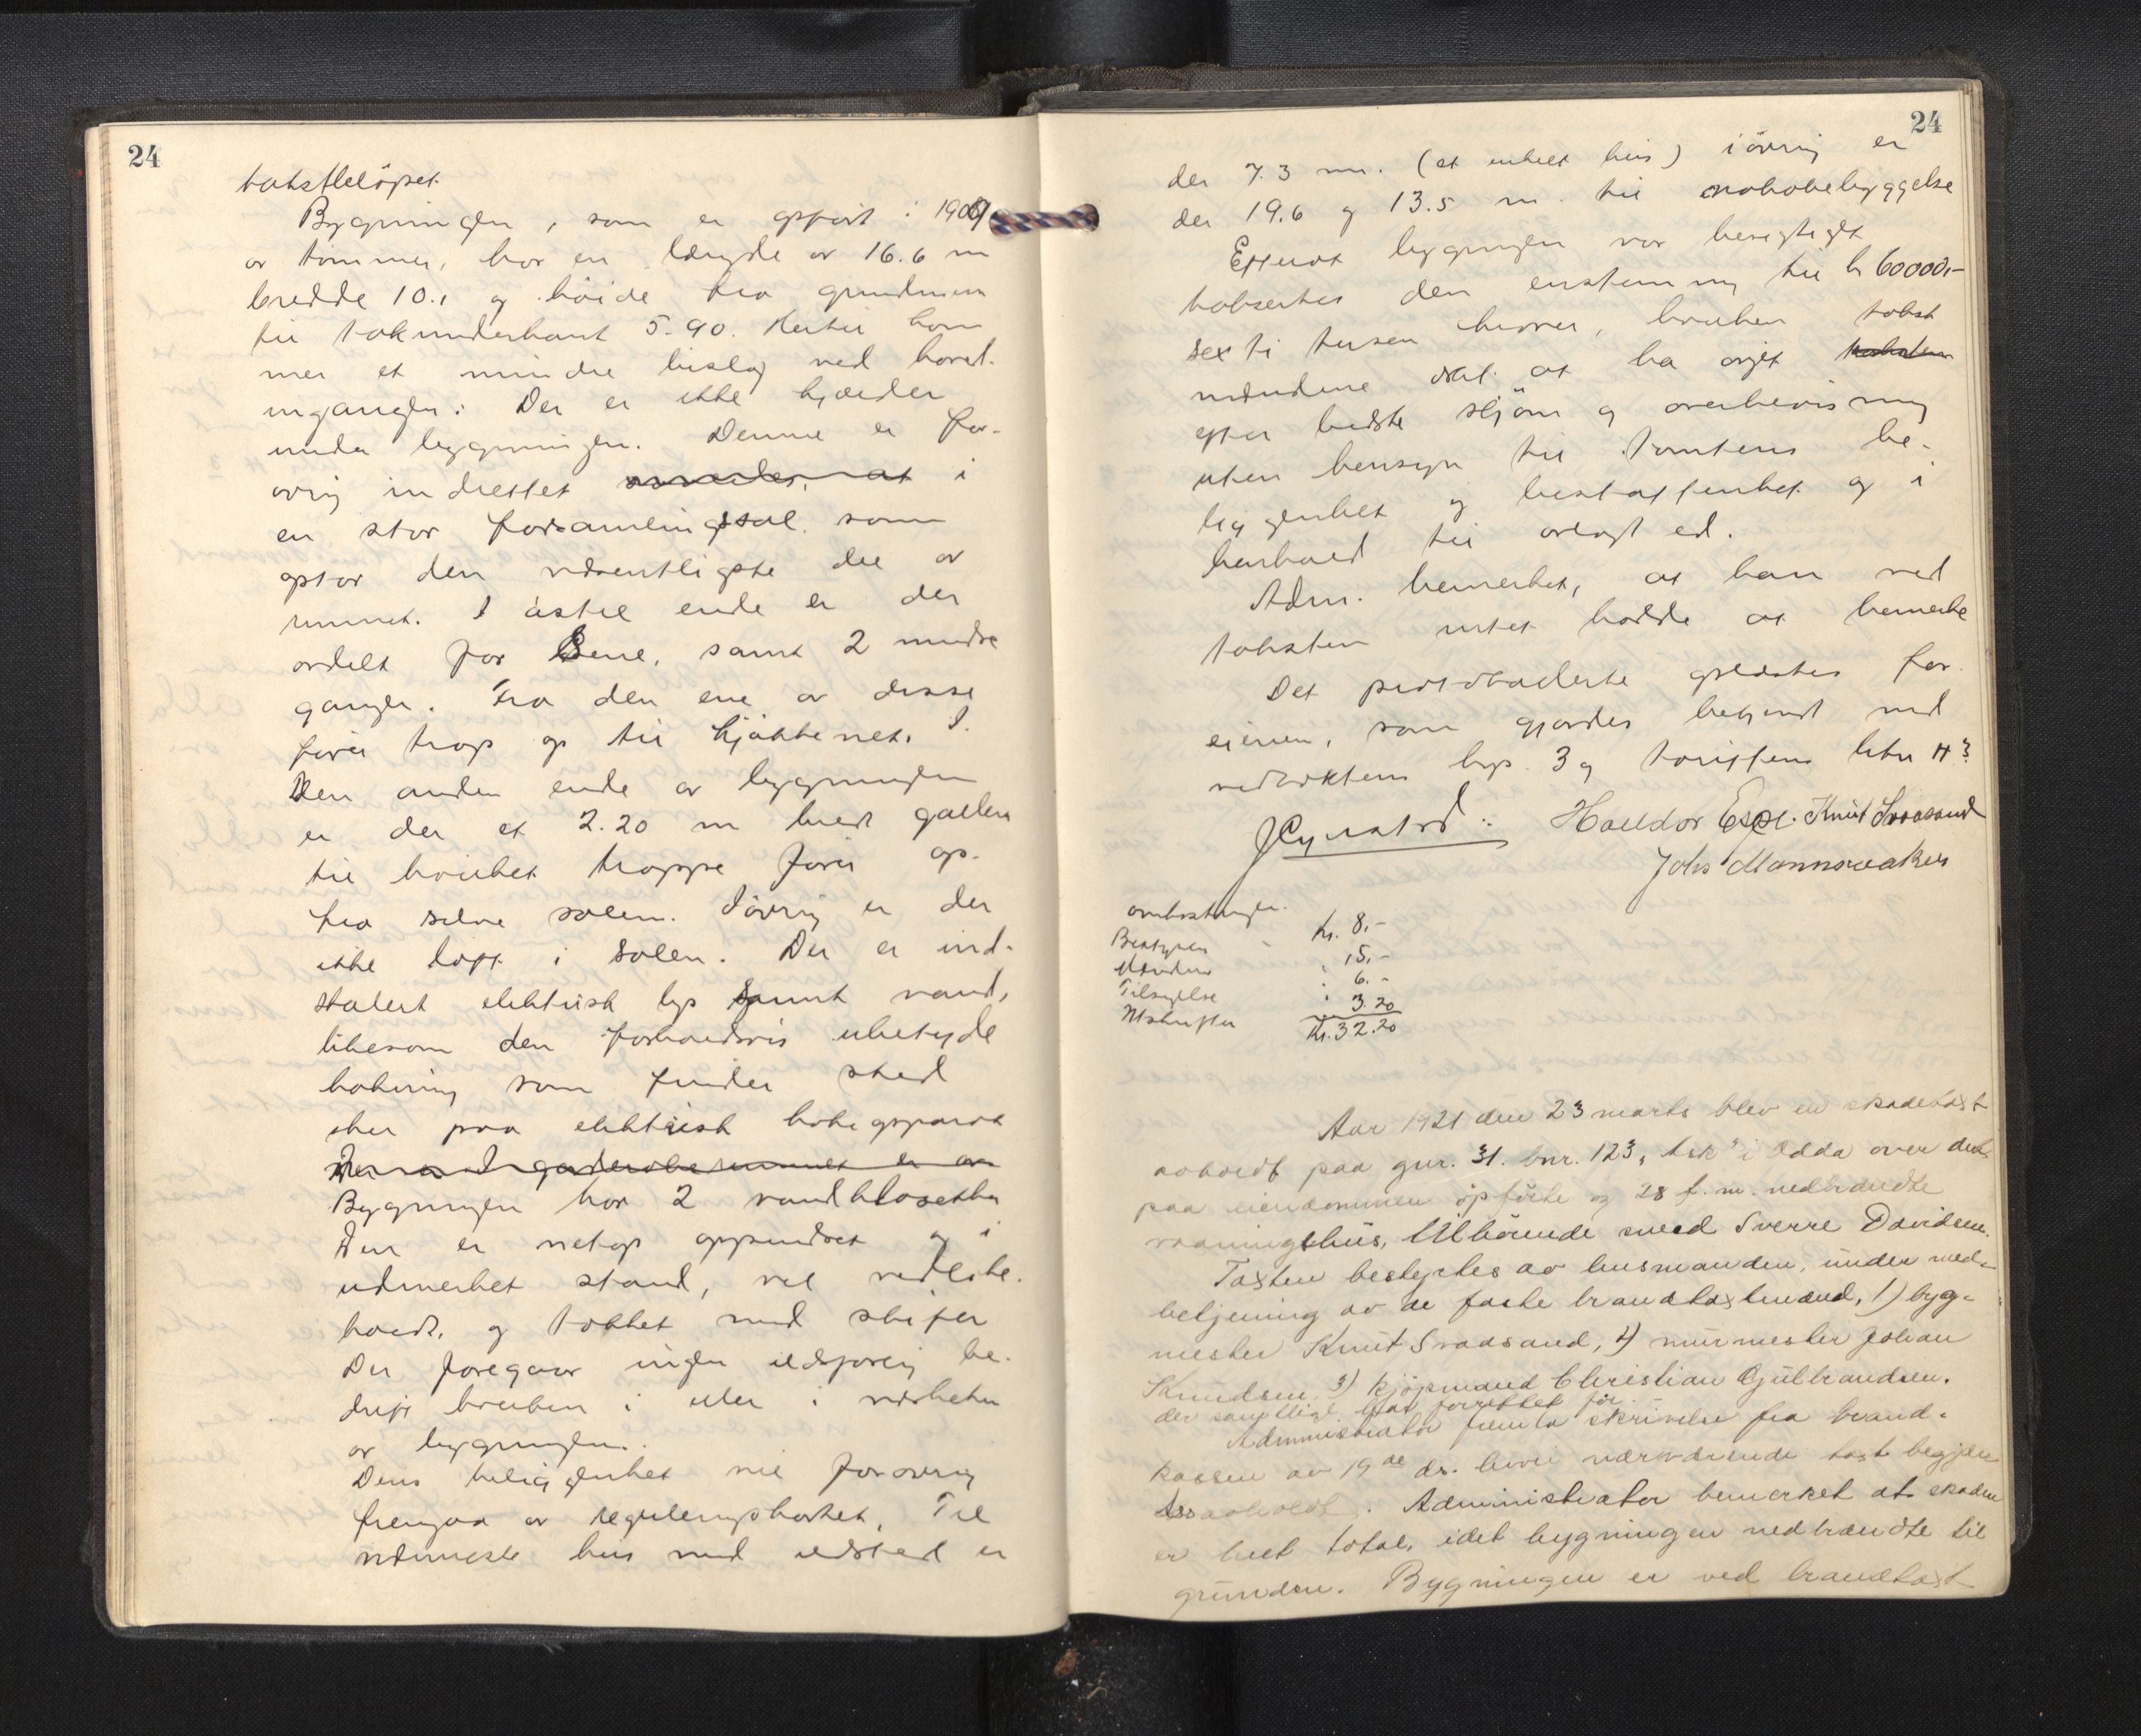 24
takstbeløpet.
Bygningen, som er opført i 1909
av tømmer, har en længde av 16.6 m
bredde 10.1 og høide fra grundmur
til takunderkant 5.90. Hertil kom
mer et mindre bislag ved hoved-
ingangen: Der er ikke kjælder
under bygningen. Denne er for-
øvrig indrettet i
en stor forsamlingssal som
optar den væsentligste del av
rummet. I østre ende er der
avdelt for Sene, samt 2 mindre
ganger. Fra den ene av disse
fører trap op til kjøkkenet. I
den anden ende av bygningen
er der et 2.20 m bredt galleri
til hvilket trappe fører op
fra selve salen. Iøvrig er der
ikke loft i salen. Der er ind-
stalert elektrisk lys samt vand,
likesom den forholdsvis ubetyde
kokning som finder sted
sker paa elektrisk kokeapparat
Der garderoberummet er av
Bygningen har 2 vandklosetter
Den er netop oppudset og i
udmerket stand, vel vedlike-
holdt, og tækket med skifer
Der foregaar ingen ildsfarlig be-
drift hverken i eller i nærheten
av bygningen.
Dens beliggenhet vil forøvrig
fremgaa av reguleringskartet. Til
nærmeste hus med ildsted er
24
der 7.3 m. (et enkelt hus) iøvrig er
der 19.6 og 13.5 m. til nabobebyggelse
Efterat bygningen var besigtiget
takseertes den enstemmig til kr 60000,-
sexti tusen kroner, hvilken takst
mændene at ha avgit taksten
efter bedste skjøn og overbevisning
uten hensyn til tomtens be-
liggenhet og beskaffenhet og i
henhold til avlagt ed.
Adm. bemerket, at han ved
taksten intet hadde at bemerke
Det protokollerte oplæstes for
eieren, som gjordes bekjendt med
vedtæktens kap. 3 og tariffens litr H3
Halldor Espe. Knut Svaasand
Johs Mannsaaker
Omkostninger.
Bestyrer kr. 8,-
Mændene " 15,-
Tilsigelse " 6.-
Utskrifter " 3.20
Kr. 32.20
Aar 1921 den 23 marts blev en skadetakst
avholdt paa gnr. 31. bnr. 123, "Ask" i Odda over det
paa eiendommen opførte og 28 f. m. nedbrændte
vaaningshus, tilhørende smed Sverre Davidsen.
Taxten bestyrtes av lensmanden, under med-
betjening av de faste brandtaxtmænd, 1) byg-
mester Knut Svaasand, 2) murmester Johan
Knudsen, 3) kjøpmand Christian Gulbrandsen.
der samtlige hat forrettet før
Administrator fremla skrivelse fra brand-
kassen av 19de ds. hvori nærværende taxt begjær-
tes avholdt. Administrator bemerket at skaden
er helt total, idet bygningen nedbrændte til
grunden. Bygningen er ved brandtaxt